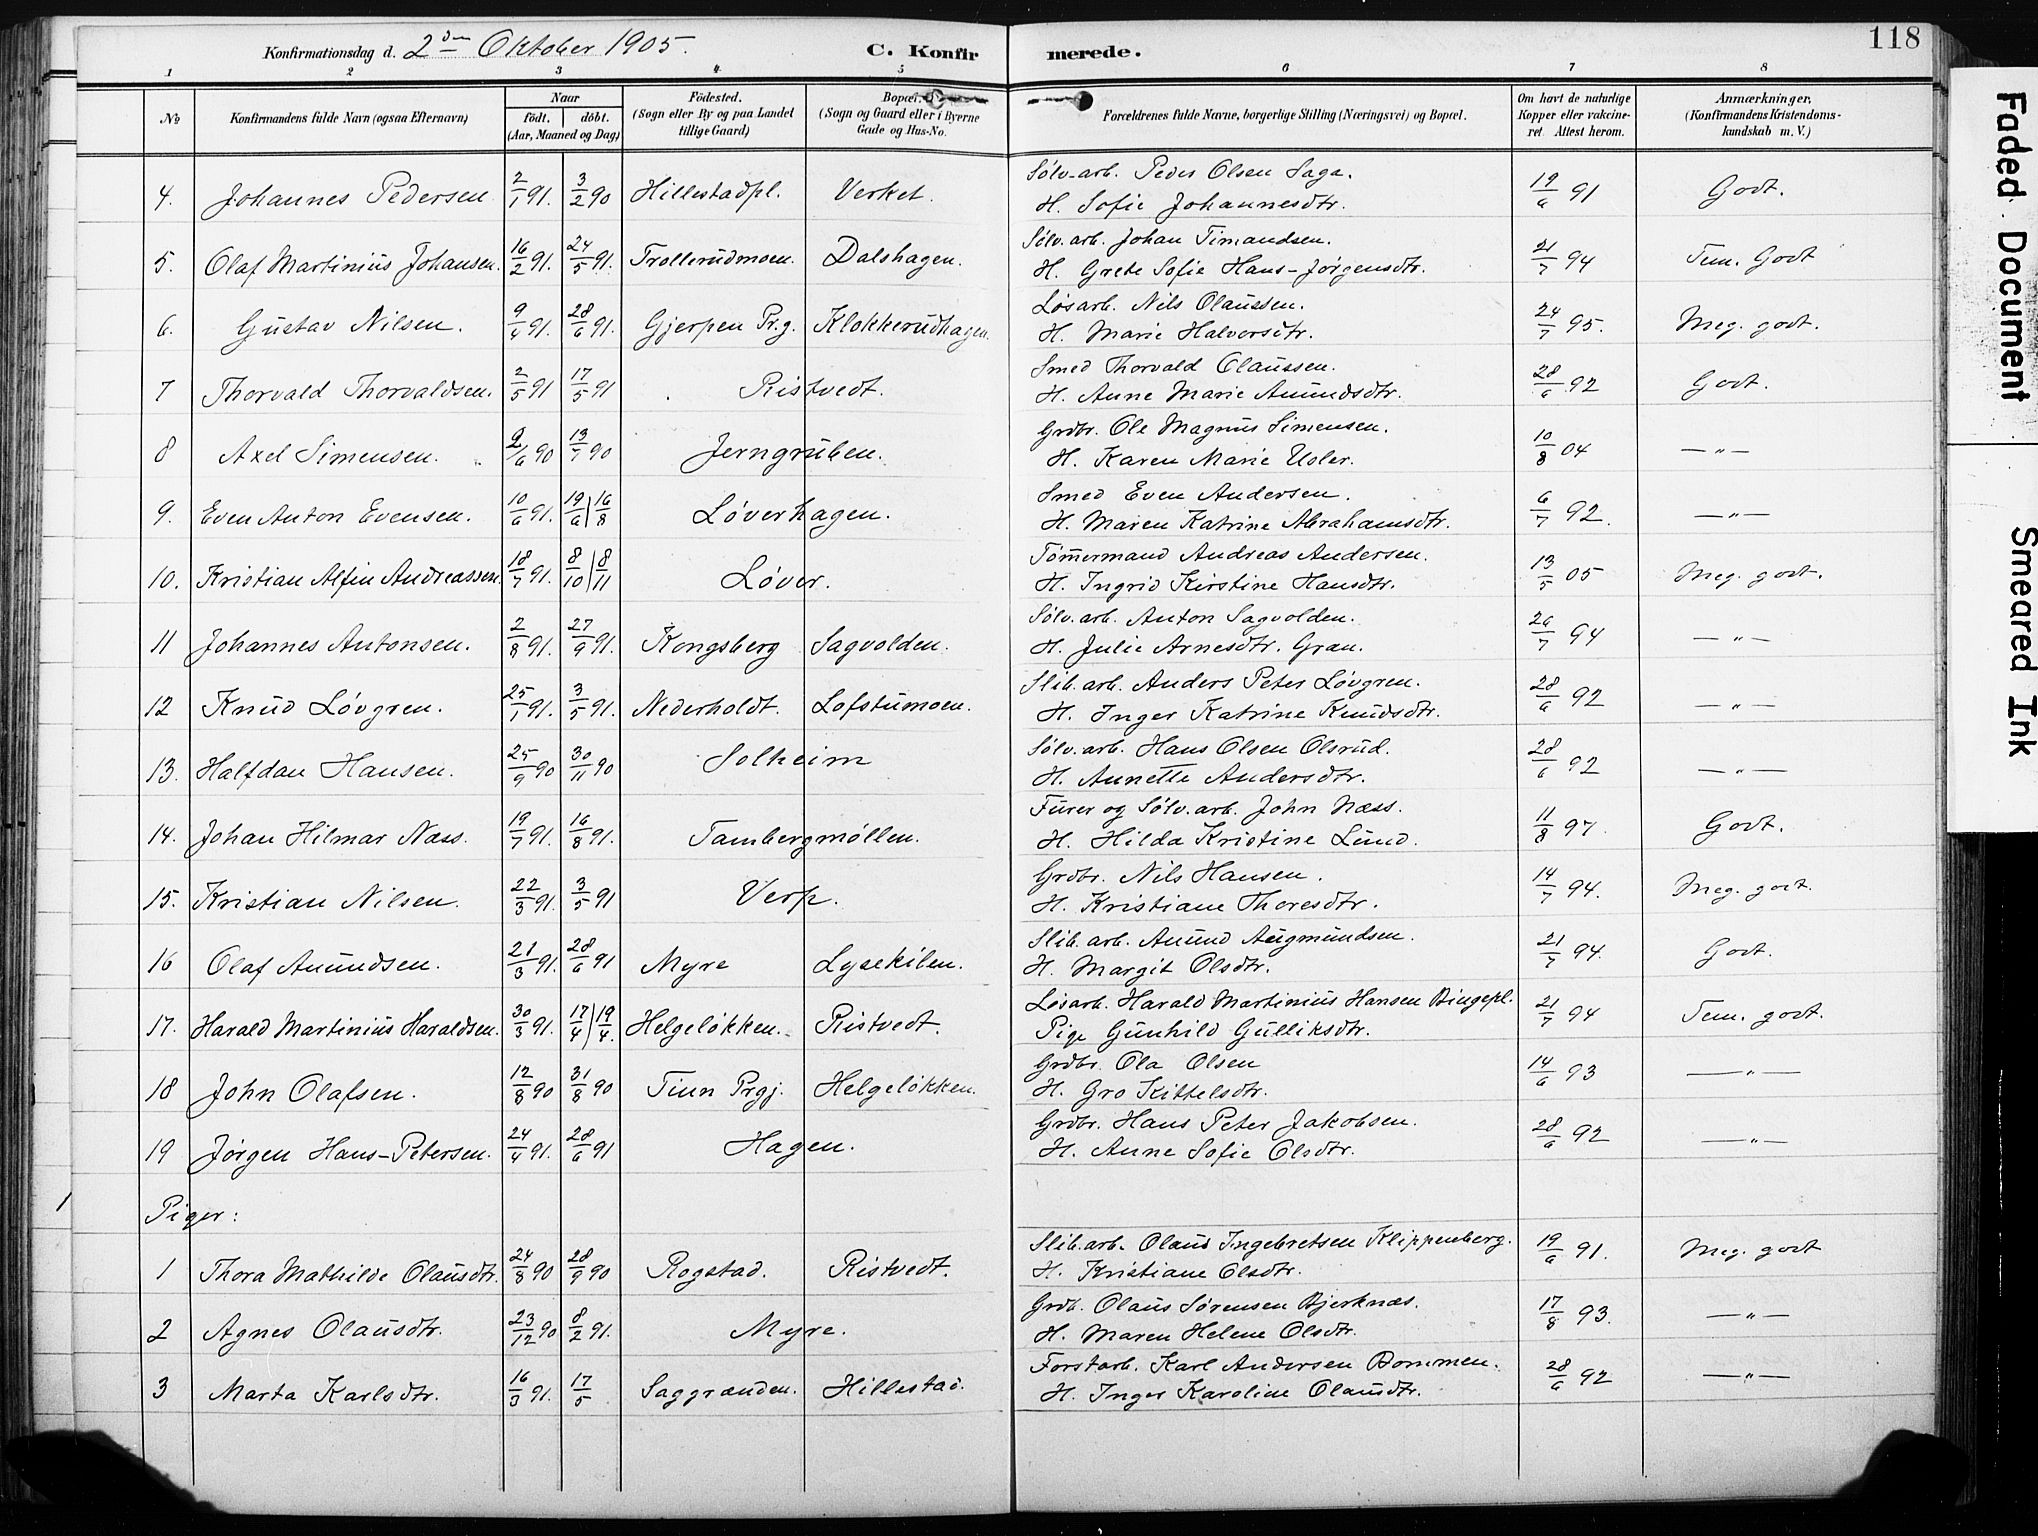 118
Konfirmationsdag d. 2den Oktober 1905.
C. Konfirmerede.
1 2 3 4 5 6 7 8
No
Konfirmandens fulde Navn (ogsaa Efternavn)
Naar
født. døbt.
(Aar, Maaned og Dag)
Födested.
(Sogn eller By og paa Landet
tillige Gaard)
Bopæl.
(Sogn og Gaard eller i Byerne
Gade og Hus-No.
Forældrenes fulde Navne, borgerlige Stilling (Næringsvei) og Bopæl.
Om havt de naturlige
Kopper eller vakcine-
ret. Attest herom.
Anmærkninger,
(Konfirmandens Kristendoms-
kundskab m. V.)
4. Johannes Pedersen 2/1 91. 3/2 90 Hillestadpl. Verket. Sølv-arb. Peder Olsen Saga. 19/6 91 Godt.
H. Sofie Johannesdtr.
5. Olaf Martinius Johansen. 16/2 91. 24/5 91. Trollerudmoen. Dalshagen. Sølv.arb. Johan Timandsen. 21/7 94 Tem. Godt
H. Grete Sofie Hans-Jørgensdtr.
6. Gustav Nilsen. 9/4 91. 28/6 91. Gjerpen Pr.g. Klokkerudhagen. Løsarb. Nils Olaussen. 24/7 95. Meg. godt.
H. Marie Halvorsdtr.
7 Thorvald Thorvaldsen. 2/5 91 17/5 91 Ristvedt. Smed Thorvald Olaussen. 28/6 92 Godt.
H. Anne Marie Amundsdtr.
8 Axel Simensen. 2/6 90 13/7 90 Jerngruben. Grdbr. Ole Magnus Simensen. 10/8 04 —„—
H. Karen Marie Usler.
9. Even Anton Evensen. 10/6 91. 19/6 | 16/8 Løverhagen. Smed Even Andersen. 6/7 92. —„—
H. Maren Katrine Abrahamsdtr.
10. Kristian Alfin Andreassen. 18/7 91. 8/10 | 8/11 Løver. Tømmermand Andreas Andersen. 13/5 05 Meg. godt.
H. Ingrid Kirstine Hansdtr.
11 Johannes Antonsen. 2/8 91. 27/9 91. Kongsberg Sagvolden. Sølv.arb. Anton Sagvolden. 26/7 94 —„—
H. Julie Arnesdtr. Gran.
12 Knud Løvgren. 25/1 91. 3/5 91. Nederholdt. Lofstumoen. Slib.arb. Anders Peter Løvgren. 28/6 92 —„—
H. Inger Katrine Knudsdtr.
13. Halfdan Hansen. 25/9 90 30/11 90 Solheim Sølv.arb. Hans Olsen Olsrud. 28/6 92 —„—
H. Annette Andersdtr.
14. Johan Hilmar Næss. 19/7 91. 16/8 91. Tambergmøllen. Furer og Sølv.arb. John Næss. 11/8 97. Godt.
H. Hilda Kristine Lund.
15. Kristian Nilsen. 22/3 91. 3/5 91 Verp. Grdbr. Nils Hansen. 14/7 94. Meg. godt.
H. Kristiane Thoresdtr.
16 Olaf Amundsen. 21/3 91. 28/6 91 Myre Lysekilen. Slib.arb. Amund Augmundsen. 21/7 94. Godt.
H. Margit Olsdtr.
17. Harald Martinius Haraldsen. 30/3 91. 17/4 | 19/4. Helgeløkken. Ristvedt. Løsarb. Harald Martinius Hansen Bingepl. 21/7 94 Tem. godt.
Pige Gunhild Gulliksdtr.
18 John Olafsen. 12/8 90 31/8 90 Tinn Prgj. Helgeløkken. Grdbr. Ola Olsen 14/6 93 —„—
H. Gro Kittelsdtr.
19 Jørgen Hans-Petersen. 24/4 91. 28/6 91 Hagen. Grdbr. Hans Peter Jakobsen. 28/6 92 —„—
H. Anne Sofie Olsdtr.
Piger:
1 Thora Mathilde Olausdtr. 24/8 90 28/9 90 Rogstad. Ristvedt. Slib.arb. Olaus Ingebretsen Klippenberg. 19/6 91. Meg. godt
H. Kristiane Olsdtr.
2 Agnes Olausdtr. 23/12 90 8/2 91. Myre. Grdb. Olaus Sørensen Bjerknæs. 17/8 93. —„—
H. Maren Helene Olsdtr.
3 Marta Karlsdtr. 16/3 91. 17/5 Saggrænden. Hillestad. Forstarb. Karl Andersen Bommen. 28/6 92 —„—
H. Inger Karoline Olausdtr.
Faded Document
Smeared Ink